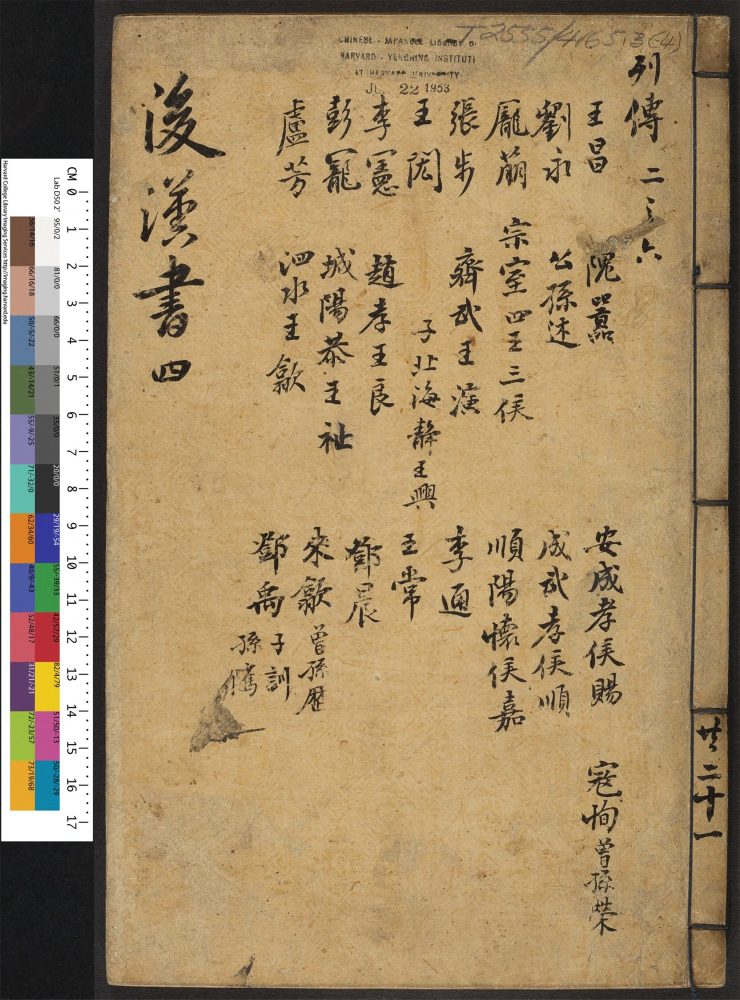 T 2555/4165.13 (4)
CHINESE - JAPANESE LIBRARY OF
HARVARD - YENCHING INSTITUTE
AT HARVARD UNIVERSITY
22 1953
後漢書 四
列傳 二之六
王昌
劉永
龐萌
張步
王閎
李憲
彭寵
盧芳
隗囂
公孫述
宗室四王三侯
齊武王縯
子北海靜王興
趙孝王良
城陽恭王祉
泗水王歙
安成孝侯賜
成武孝侯順
順陽懷侯嘉
李通
王常
鄧晨
來歙 曾孫歷
鄧禹 子訓
孫騭
寇恂 曾孫榮
共二十一
CM 0 1 2 3 4 5 6 7 8 9 10 11 12 13 14 15 16 17
Harvard College Library Imaging Services